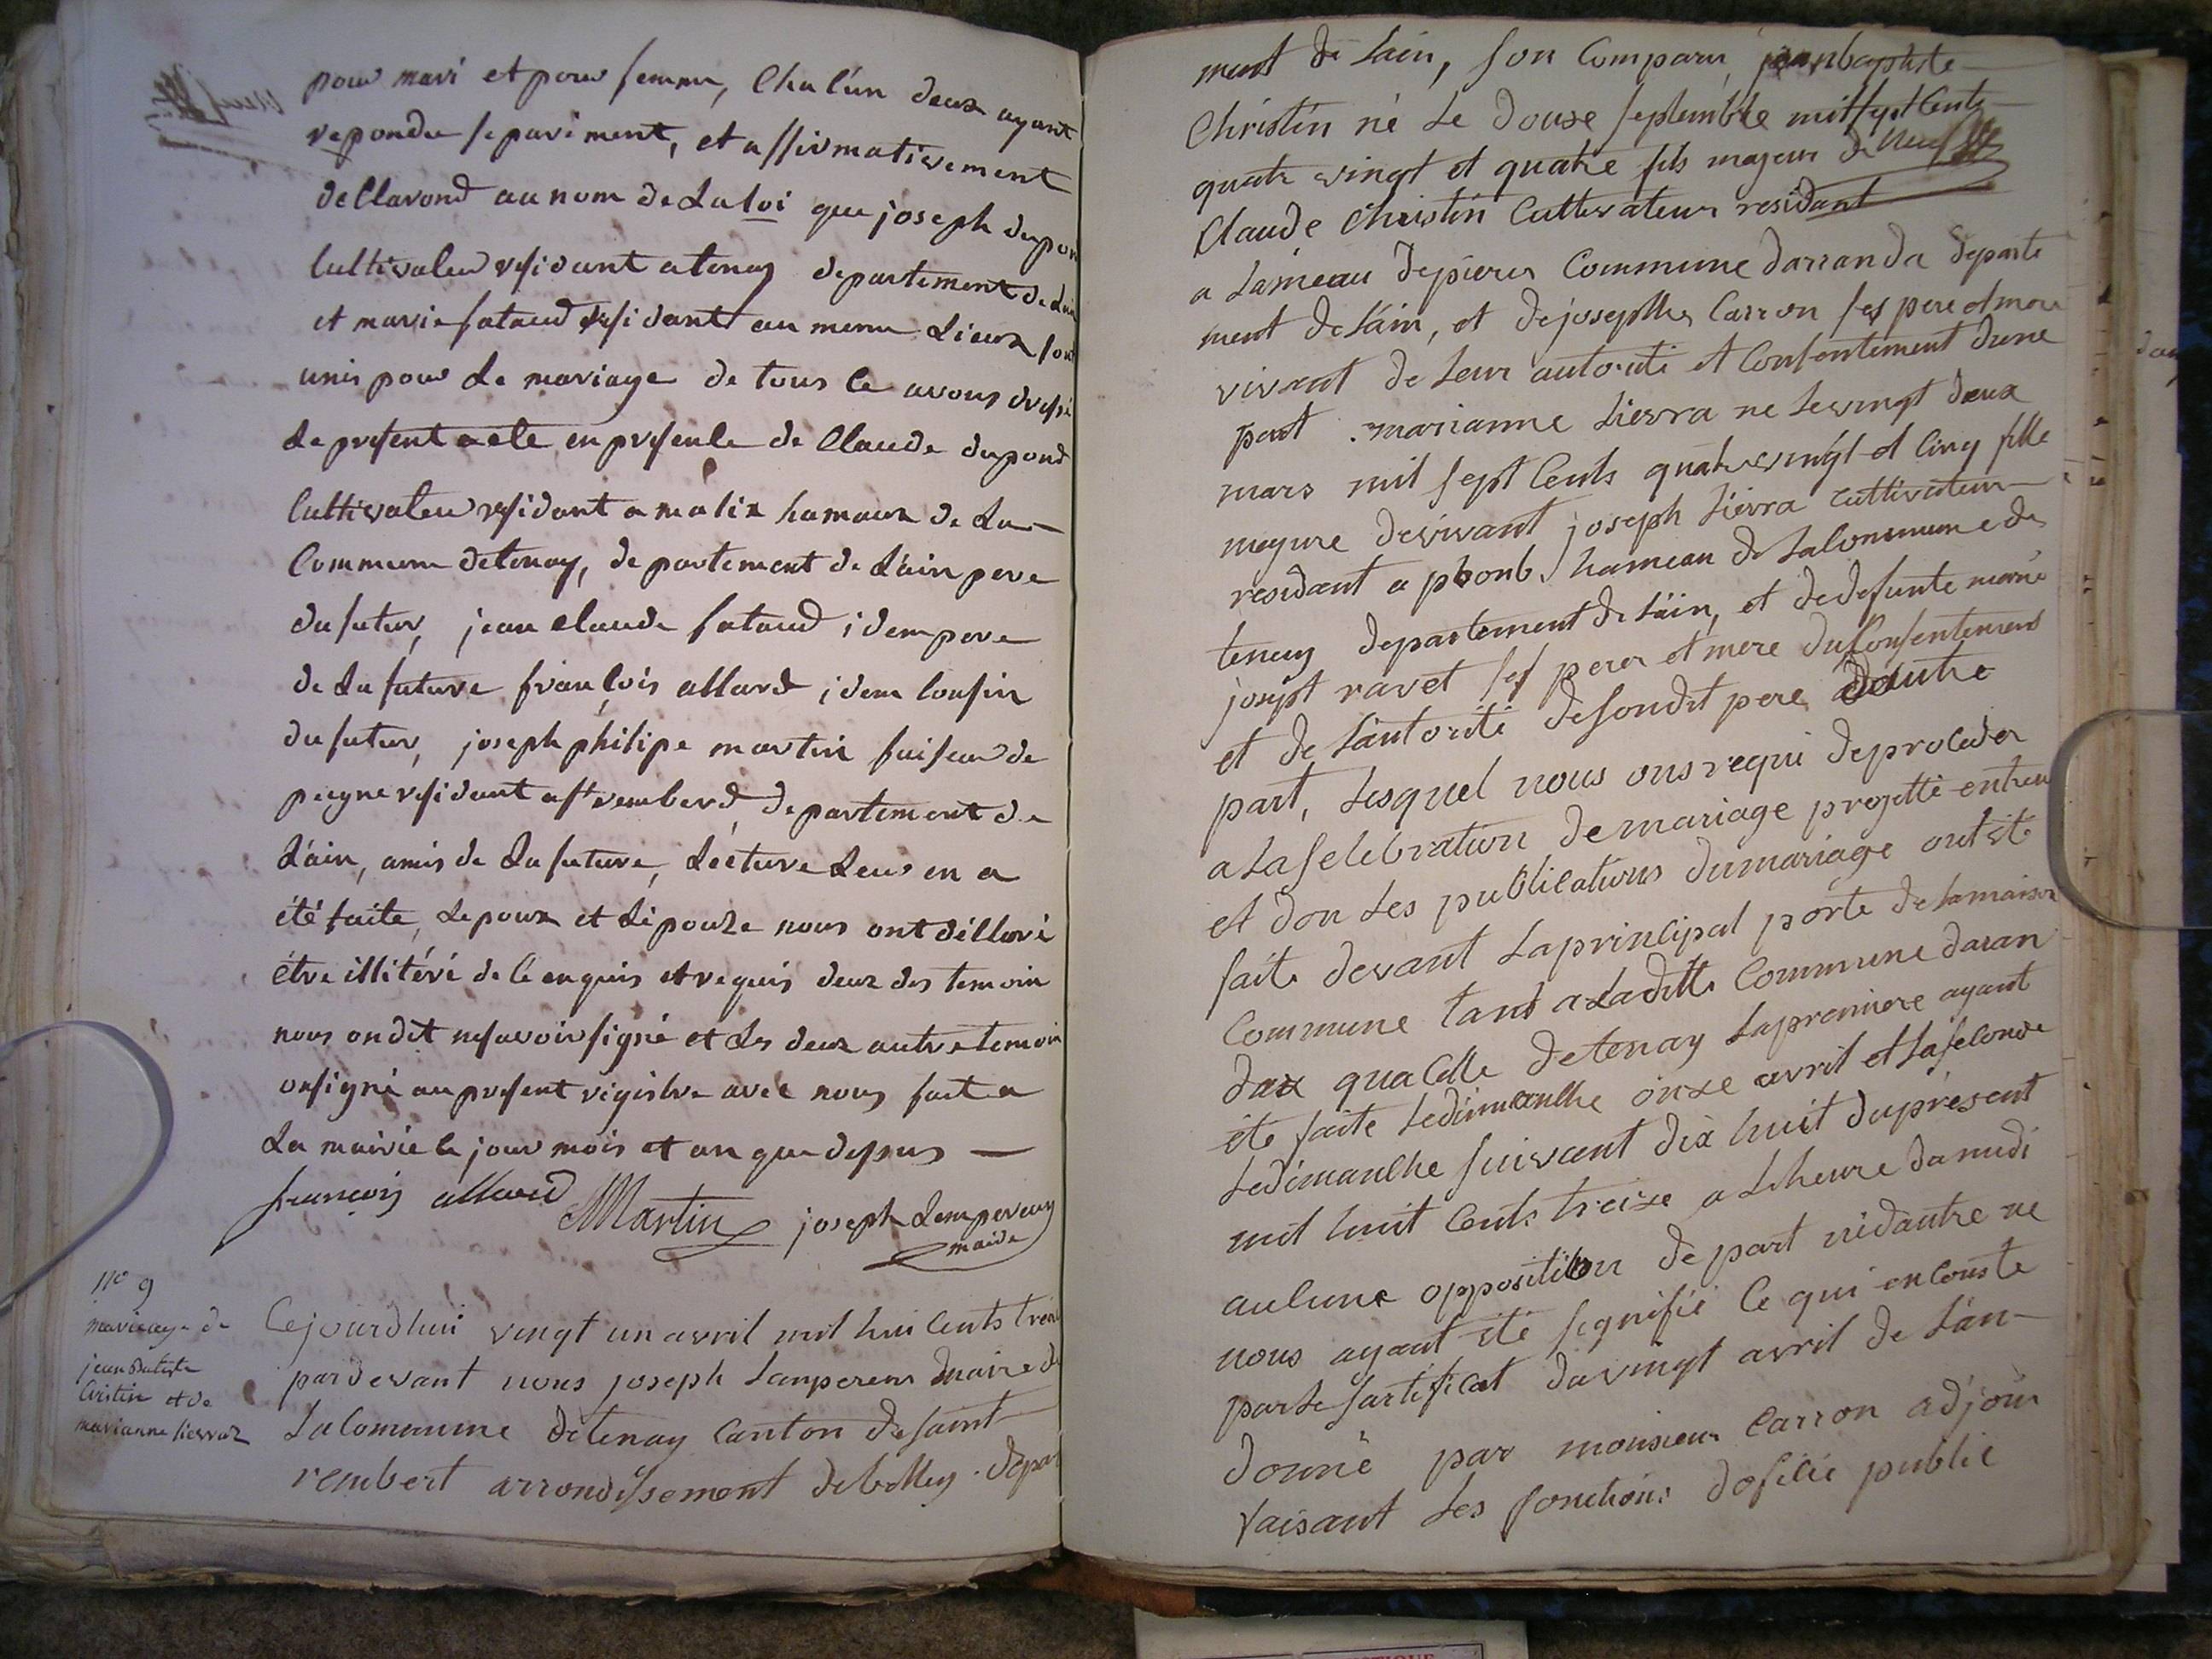 pour mari et pour femme, Chalún deux ayant
repondu separiment, et affirmativement
dellarond au nom de La loi que joseph dupon
Cultivateur residant a tenay departement de Lain
et marie fataud residant au meme Lieux son
unis pour Le mariage de tous Ce avons dressé
Le present acte en presence de Claude dupond
Cultivateur residant a malix hamaux de La
Commune detenay, departement de L'ain pere
du futur, jean claude fataud idem pere
de La future françois allard idem Cousin
du futur, joseph philipe martin faiseur de
peigne residant a st rembert departement de
L'ain, amis de La future, Lécture Leur en a
été faite, Lepoux et Lépouze nous ont déllaré
être illitéré de Ce enquis et requis deux des temoin
nous on dit ne savoir signé et Les deux autre temoin
on signé au present registre avec nous fait a
La mairie Ce jour mois et an que dessus
françois allard Martin joseph Lempereur
maire
N° 9
mariage de
jean Batiste
Cristin et de
marianne Lievraz
Cejourdhui vingt un avril mil hui Cents trei
pardevant nous joseph Lanpereur maire de
La Commune detenay Canton de saint
rembert arrondissement de belley. depar
ment de Lain, son Comparu, jeanbaptiste
Christin né Le douze septembre mil sept Cents
quatre vingt et quatre fils majeur de
Claude Christin Cultivateur residant
a Lameau depierer Commune darranda departe
ment de Lain, et de josephte Carron ses pere et mere
vivant de Leur autorité et Consentement dune
part. marianne Lievra ne Levingt deux
mars mil sept Cents quatrevingt et Cinq fille
mayure devivant joseph Lievra Cultivateur
residant a plomb hameau de LaCommune de
tenay departement de Lain, et dedefunte marie
josept ravet ses perer et mere du Consentement
et de Lautorité desondit pere dautre
part, Lesquel nous ons requi deproceder
a La selebration de mariage projetté entreu
et don Les publications du mariage ont été
faite devant Laprincipal porte de Lamaison
Commune tant a Laditte Commune daran
dax qua Celle detenay Lapremiere ayant
été faite Ledimanche onze avril et Laseconde
Ledimanche suivant dix huit duprésent
mil huit Cents treize a Lheure damidi
aucune opposition de part nidautre ne
nous ayant été signifié Ce qui enConste
par Le sartificat du vingt avril de Lan
donné par monsieur Carron adjoin
faisant Les fonctions dofilié public